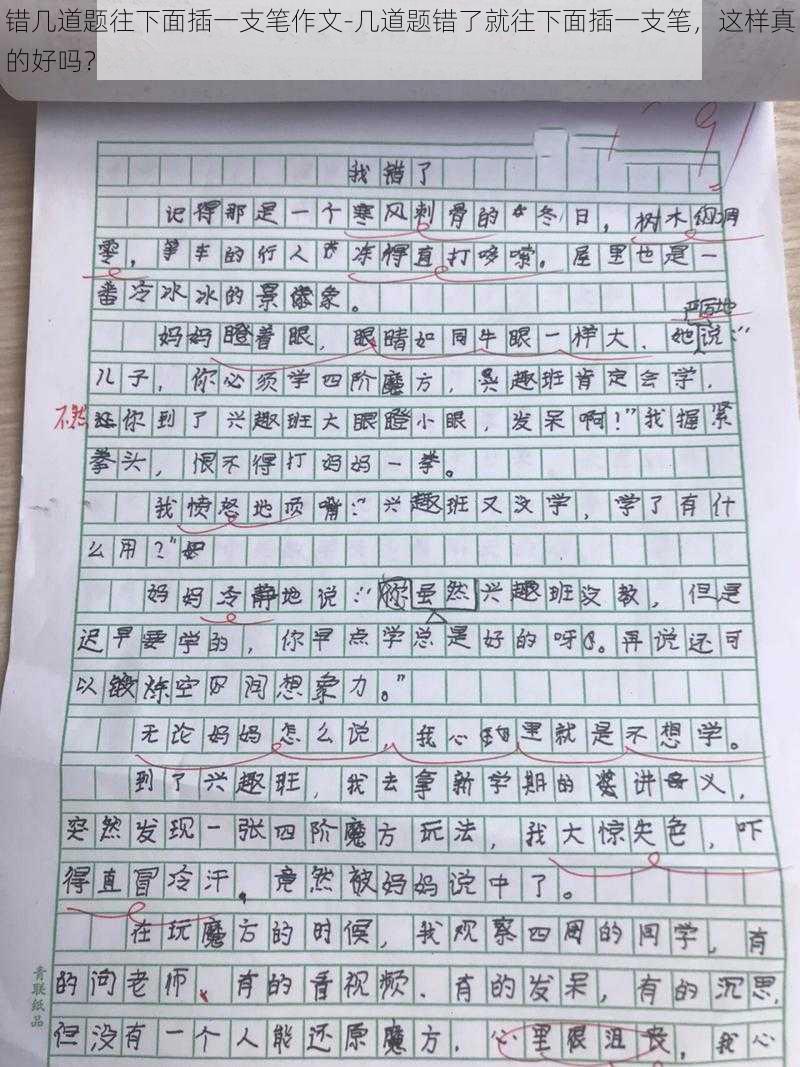 错几道题往下面插一支笔作文-几道题错了就往下面插一支笔，这样真
的好吗？
91
我错了
记得那是一个寒风刺骨的冬日，树木凋
零，等车的行人冻得直打哆嗦。屋里也是一
番冷冰冰的景象。
严厉地
妈妈瞪着眼，眼睛如同牛眼一样大，她说：“
儿子，你必须学四阶魔方，兴趣班肯定会学，
不然
你到了兴趣班大眼瞪小眼，发呆啊！”我握紧
拳头，恨不得打妈妈一拳。
我愤怒地顶嘴：“兴趣班又没学，学了有什
么用？”
妈妈冷静地说：“你虽然兴趣班没教，但是
迟早要学的，你早点学总是好的呀。再说还可
以锻炼空间想象力。”
无论妈妈怎么说，我心里就是不想学。
到了兴趣班，我去拿新学期的讲义，
突然发现一张四阶魔方玩法，我大惊失色，吓
得直冒冷汗，竟然被妈妈说中了。
在玩魔方的时候，我观察四周的同学，有
的问老师、有的看视频、有的发呆，有的沉思，
但没有一个人能还原魔方，心里很沮丧，我心
青联纸品